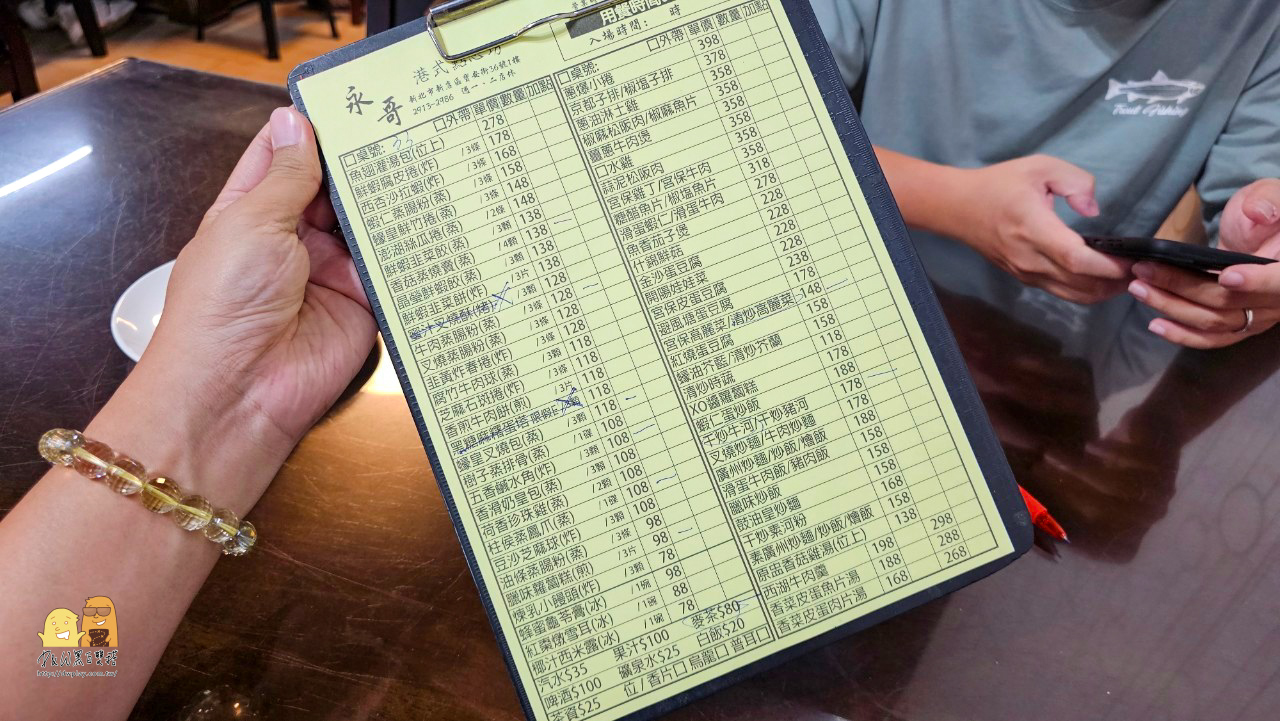 用餐時間
入場時間： 時
永哥
港式
新北市新店區寶安街36號1樓
2913-2986 週一、二店休
□外帶 單價 數量 加點
□桌號: 33
魚翅灌湯包(位上) 278
鮮蝦腐皮捲(炸) /3條 178
西杏沙拉蝦(炸) /3條 168
蝦仁蒸腸粉(蒸) /3條 158
醬皇鮮竹捲(蒸) /3條 148
澎湖絲瓜捲(蒸) /2條 148
鮮蝦韭菜餃(蒸) 138
香菇蒸燒賣(蒸) /4顆 138
晶瑩鮮蝦餃(蒸) /3顆 138
鮮蝦韭菜餅(炸) /3片 138
蜜汁叉燒酥(烤) /3顆 128
牛肉蒸腸粉(蒸) /3條 128
叉燒蒸腸粉(蒸) /3條 128
韭黃炸春捲(炸) /3條 128
腐竹牛肉球(蒸) /3顆 118
芝麻石斑捲(炸) /3條 118
香煎牛肉餅(煎) /3片 118
118
醬皇叉燒包(蒸) 118
樹子蒸排骨(蒸) /1碟 108
五香鹹水角(炸) /3顆 108
香滑奶皇包(蒸) /3顆 108
荷香珍珠雞(蒸) /2顆 108
柱侯蒸鳳爪(蒸) 108
豆沙芝麻球(炸) /3顆 108
油條蒸腸粉(蒸) 98
臘味蘿蔔糕(煎) /3片 98
煉乳小饅頭(炸) /3顆 78
蜂蜜龜苓膏(冰) /1碗 98
紅棗燉雪耳(冰) /1碗 88
椰汁西米露(冰) 78
汽水$35 果汁$100 麥茶$80
啤酒$100 礦泉水$25 白飯$20
茶資$25 位/香片□ 烏龍□ 普耳□
□外帶 單價 數量 加點
□桌號:
蔥爆小捲
京都子排/椒塩子排
蔥油淋土雞
椒麻松阪肉/椒麻魚片
薑蔥牛肉煲
口水雞
蒜泥松阪肉
宮保雞丁/宮保牛肉
糖醋魚片/椒塩魚片
滑蛋蝦仁/滑蛋牛肉
魚香茄子煲
什錦鮮菇
金沙蛋豆腐
開陽娃娃菜
宮保皮蛋豆腐
避風塘蛋豆腐
宮保高麗菜/清炒高麗菜
紅燒蛋豆腐
蠔油芥藍/清炒芥蘭
清炒時蔬
XO醬蘿蔔糕
蝦仁蛋炒飯
干炒牛河/干炒豬河
叉燒炒麵/牛肉炒麵
廣州炒麵/炒飯/燴飯
滑蛋牛肉飯/豬肉飯
臘味炒飯
豉油皇炒麵
干炒素河粉
素廣州炒麵/炒飯/燴飯
原盅香菇雞湯(位上)
西湖牛肉羹
香菜皮蛋魚片湯
香菜皮蛋肉片湯
398
378
358
358
358
358
358
358
318
278
228
228
228
228
238
178
148
158
158
118
178
188
178
178
188
158
158
168
158
138
198 298
188 288
168 268
Trout Fishing